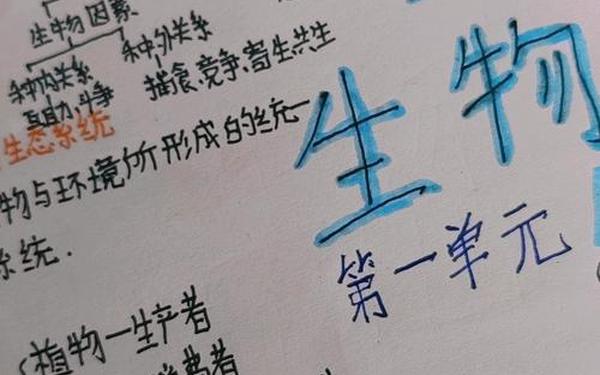 生物因素
种内关系
互助、斗争
种外关系
捕食、竞争、寄生共生
生态系统
物与环境所形成的统一
系统.
植物一生产者
消费者
生物
第一单元